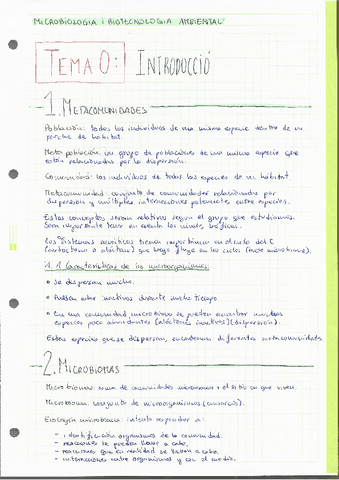 MICROBIOLOGIA i BIOTECNOLOGIA AMBIENTAL
TEMA 0: INTRODUCCIÓ
1. METACOMUNIDADES
Población: todos los individuos de una misma especie dentro de un
parche de hábitat.
Meta población: un grupo de poblaciones de una misma especie que
están relacionadas por la dispersión.
Comunidad: los individuos de todas las especies de un hábitat.
Metacomunidad: conjunto de comunidades relacionadas por
dispersión y múltiples interacciones potenciales entre especies.
Estos conceptos serán relativos según el grupo que estudiemos.
Será importante tener en cuenta los niveles
Los sistemas acuáticos tienen importancia en el ciclo del C
(autóctono o alóctono) que luego fluye en los ciclos
1.1 Características de los microorganismos:
• Se dispersan mucho.
• Pueden estar inactivos durante mucho tiempo
• En una comunidad microbiana se pueden encontrar muchas
especies poco abundantes (alóctonas inactivas) (dispersión).
Estas especies que se dispersan, encadenan diferentes metacomunidades.
2. MICROBIOMAS
Microbioma: suma de comunidades microbianas + el sitio en que viven.
Microbioma: conjunto de microorganismos (consorcio).
Ecología microbiana: intenta responder a:
- identificación organismos de la comunidad.
- reacciones se pueden llevar a cabo.
- reacciones que en realidad se llevan a cabo.
- interacciones entre organismos y con el medio.